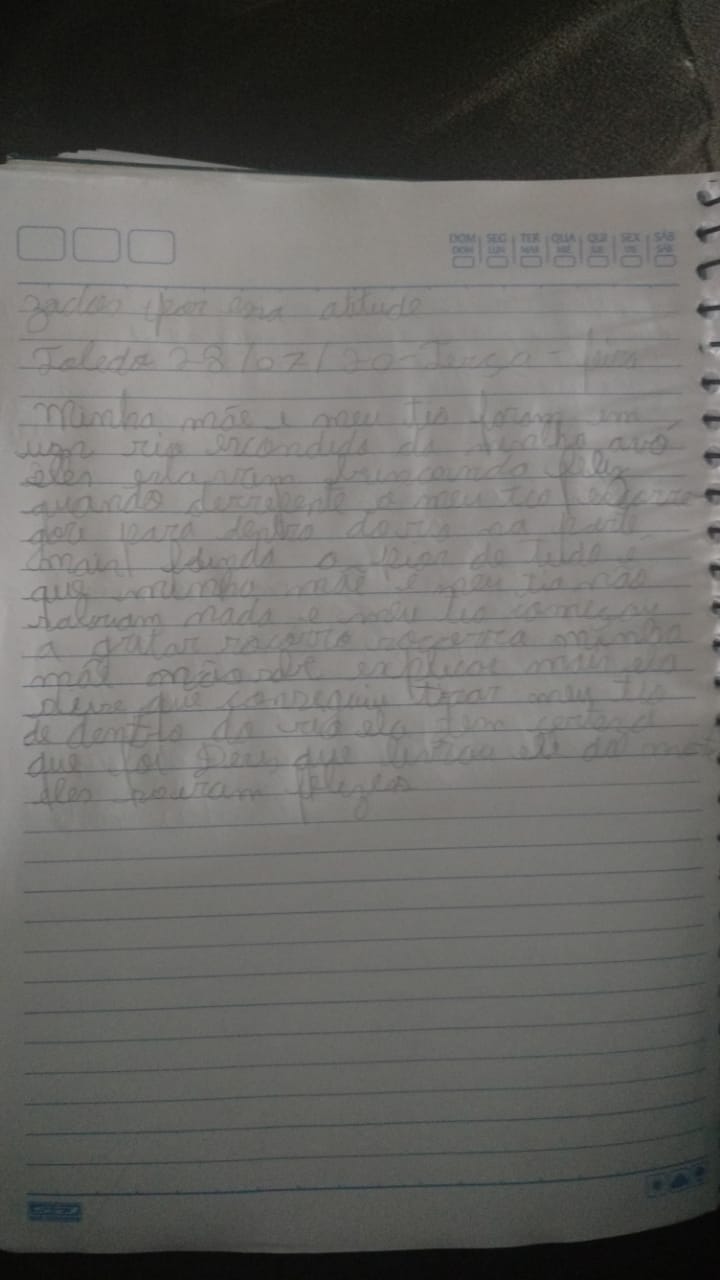 DOM SEG TER QUA QUI SEX SÁB
DOM LUN MAR MIE JUE VIE SÁB
zados por essa atitude
Toledo 28/07/20-Terça-feira
Minha mãe e meu tio foram em
um rio escondido da minha avó
eles estavam brincando feliz
quando derrepente o meu tio
para dentro do rio na parte
mais funda o pior de tudo é
que minha mãe e meu tio não
nada e meu tio começou
a gritar socorro socorro minha
mãe não explicar mais ela
disse que conseguiu tirar meu tio
de dentro do rio ela tem certeza
que foi Deus que ele da
eles felizes